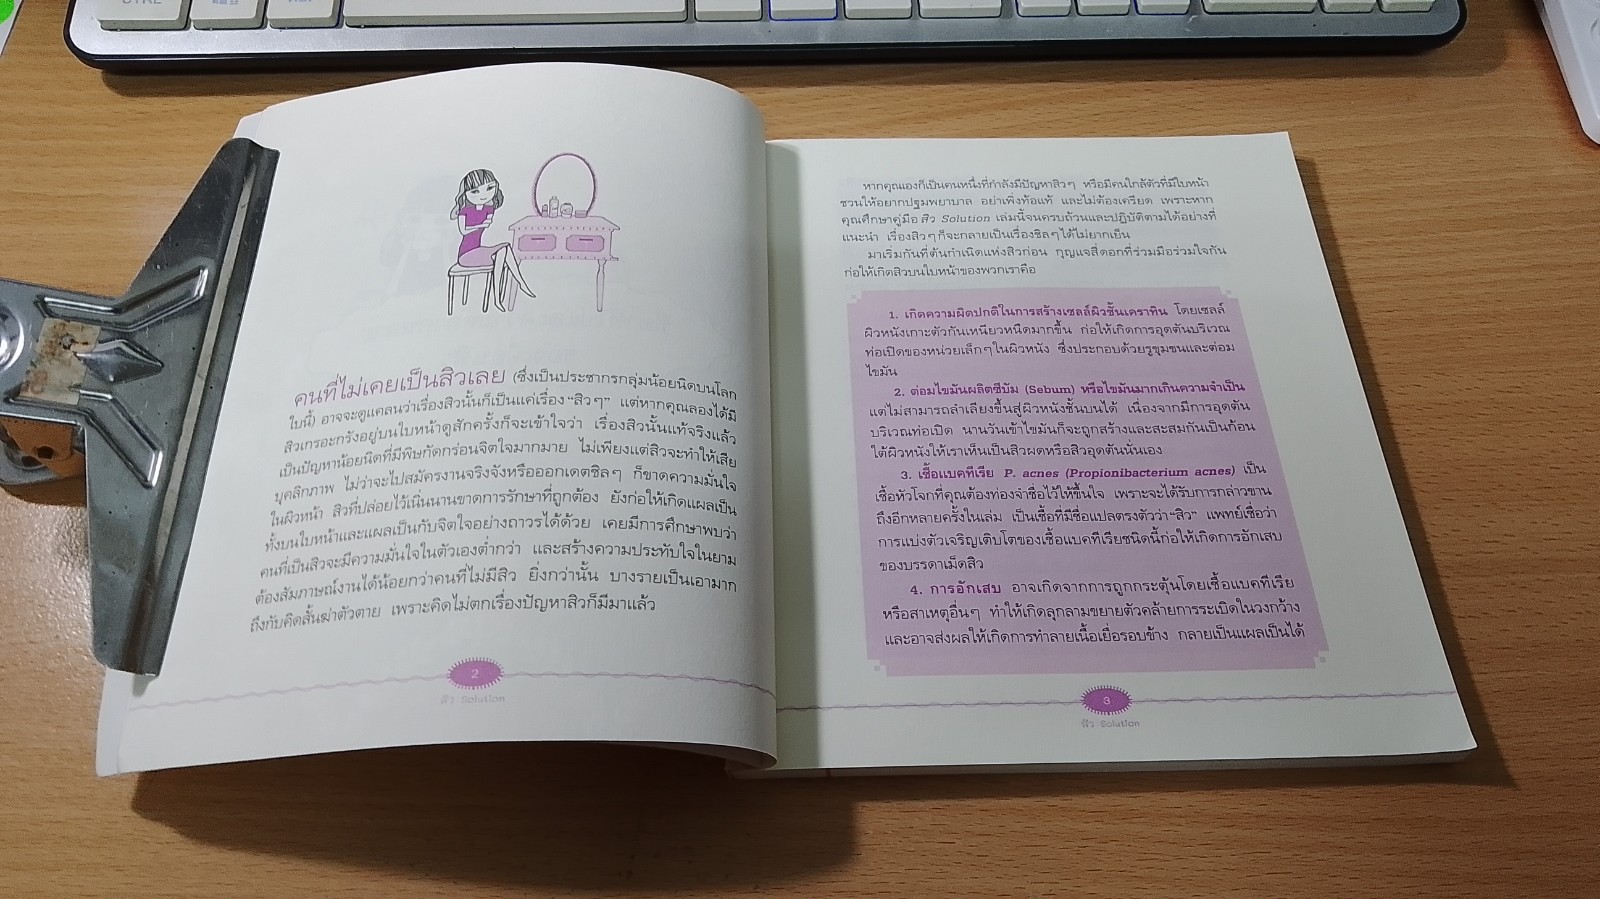 CTRL
คนที่ไม่เคยเป็นสิวเลย (ซึ่งเป็นประชากรกลุ่มน้อยนิดบนโลก
ใบนี้) อาจจะดูแคลนว่าเรื่องสิวนั้นก็เป็นแค่เรื่อง “สิวๆ” แต่หากคุณลองได้มี
สิวเกรอะกรังอยู่บนใบหน้าดูสักครั้งก็จะเข้าใจว่า เรื่องสิวนั้นแท้จริงแล้ว
เป็นปัญหาน้อยนิดที่มีพิษกัดกร่อนจิตใจมากมาย ไม่เพียงแต่สิวจะทำให้เสีย
บุคลิกภาพ ไม่ว่าจะไปสมัครงานจริงจังหรือออกเดตชิลๆ ก็ขาดความมั่นใจ
ในผิวหน้า สิวที่ปล่อยไว้เนิ่นนานขาดการรักษาที่ถูกต้อง ยังก่อให้เกิดแผลเป็น
ทั้งบนใบหน้าและแผลเป็นกับจิตใจอย่างถาวรได้ด้วย เคยมีการศึกษาพบว่า
คนที่เป็นสิวจะมีความมั่นใจในตัวเองต่ำกว่า และสร้างความประทับใจในยาม
ต้องสัมภาษณ์งานได้น้อยกว่าคนที่ไม่มีสิว ยิ่งกว่านั้น บางรายเป็นเอามาก
ถึงกับคิดสั้นฆ่าตัวตาย เพราะคิดไม่ตกเรื่องปัญหาสิวก็มีมาแล้ว
2
สิว Solution
หากคุณเองก็เป็นคนหนึ่งที่กำลังมีปัญหาสิวๆ หรือมีคนใกล้ตัวที่มีใบหน้า
ชวนให้อยากปฐมพยาบาล อย่าเพิ่งท้อแท้ และไม่ต้องเครียด เพราะหาก
คุณศึกษาคู่มือ สิว Solution เล่มนี้จนครบถ้วนและปฏิบัติตามได้อย่างที่
แนะนำ เรื่องสิวๆ ก็จะกลายเป็นเรื่องชิลๆ ได้ไม่ยากเย็น
มาเริ่มกันที่ต้นกำเนิดแห่งสิวก่อน กุญแจสี่ดอกที่ร่วมมือร่วมใจกัน
ก่อให้เกิดสิวบนใบหน้าของพวกเราคือ
1. เกิดความผิดปกติในการสร้างเซลล์ผิวชั้นเคราทิน โดยเซลล์
ผิวหนังเกาะตัวกันเหนียวหนืดมากขึ้น ก่อให้เกิดการอุดตันบริเวณ
ท่อเปิดของหน่วยเล็กๆ ในผิวหนัง ซึ่งประกอบด้วยรูขุมขนและต่อม
ไขมัน
2. ต่อมไขมันผลิตซีบัม (Sebum) หรือไขมันมากเกินความจำเป็น
แต่ไม่สามารถลำเลียงขึ้นสู่ผิวหนังชั้นบนได้ เนื่องจากมีการอุดตัน
บริเวณท่อเปิด นานวันเข้าไขมันก็จะถูกสร้างและสะสมกันเป็นก้อน
ใต้ผิวหนังให้เราเห็นเป็นสิวผดหรือสิวอุดตันนั่นเอง
3. เชื้อแบคทีเรีย P. acnes (Propionibacterium acnes) เป็น
เชื้อหัวโจกที่คุณต้องท่องจำชื่อไว้ให้ขึ้นใจ เพราะจะได้รับการกล่าวขาน
ถึงอีกหลายครั้งในเล่ม เป็นเชื้อที่มีชื่อแปลตรงตัวว่า “สิว” แพทย์เชื่อว่า
การแบ่งตัวเจริญเติบโตของเชื้อแบคทีเรียชนิดนี้ก่อให้เกิดการอักเสบ
ของบรรดาเม็ดสิว
4. การอักเสบ อาจเกิดจากการถูกกระตุ้นโดยเชื้อแบคทีเรีย
หรือสาเหตุอื่นๆ ทำให้เกิดลุกลามขยายตัวคล้ายการระเบิดในวงกว้าง
และอาจส่งผลให้เกิดการทำลายเนื้อเยื่อรอบข้าง กลายเป็นแผลเป็นได้
3
สิว Solution